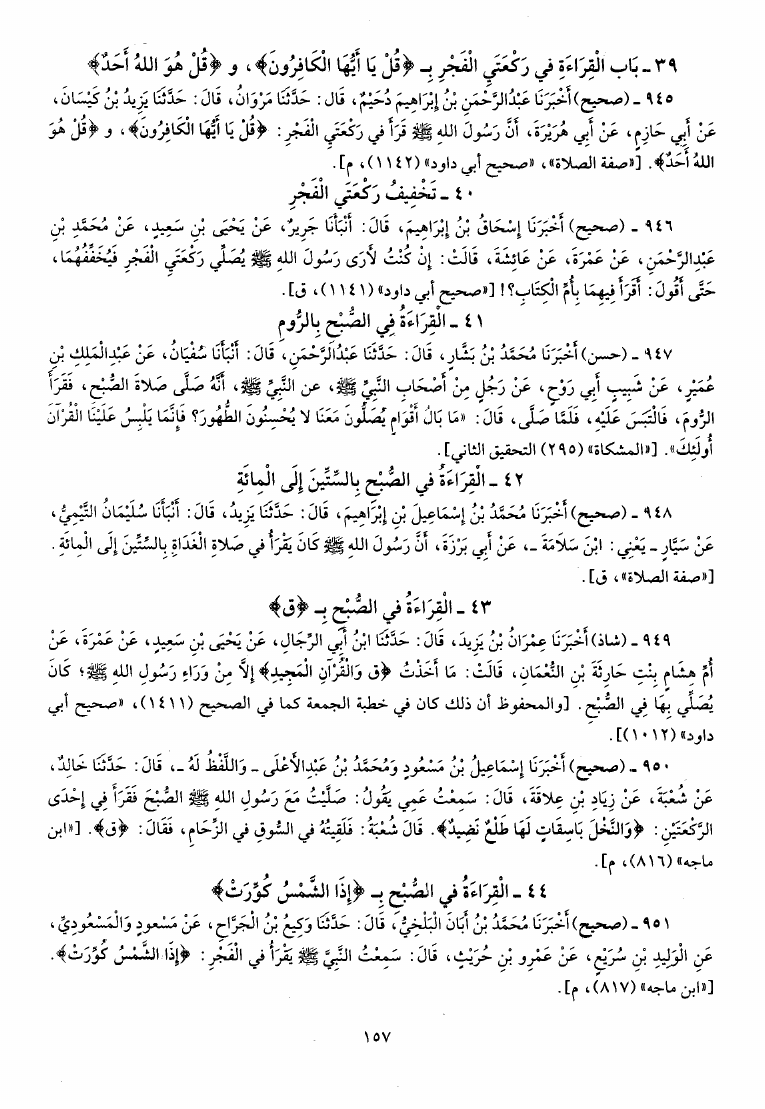 ٣٩ ـ بَاب الْقِرَاءَةِ فِي رَكْعَتَيِ الْفَجْرِ بـ ﴿قُلْ يَا أَيُّهَا الْكَافِرُونَ﴾، و ﴿قُلْ هُوَ اللهُ أَحَدٌ﴾
٩٤٥ ـ (صحيح) أَخْبَرَنَا عَبْدُالرَّحْمَنِ بْنُ إِبْرَاهِيمَ دُحَيْمٌ، قال: حَدَّثَنَا مَرْوَانُ، قَالَ: حَدَّثَنَا يَزِيدُ بْنُ كَيْسَانَ،
عَنْ أَبِي حَازِمٍ، عَنْ أَبِي هُرَيْرَةَ، أَنَّ رَسُولَ اللهِ ﷺ قَرَأَ فِي رَكْعَتَيِ الْفَجْرِ: ﴿قُلْ يَا أَيُّهَا الْكَافِرُونَ﴾، و ﴿قُلْ هُوَ
اللهُ أَحَدٌ﴾. [«صفة الصلاة»، «صحيح أبي داود» (١١٤٢)، م].
٤٠ ـ تَخْفِيفُ رَكْعَتَيِ الْفَجْرِ
٩٤٦ ـ (صحيح) أَخْبَرَنَا إِسْحَاقُ بْنُ إِبْرَاهِيمَ، قَالَ: أَنْبَأَنَا جَرِيرٌ، عَنْ يَحْيَى بْنِ سَعِيدٍ، عَنْ مُحَمَّدِ بْنِ
عَبْدِالرَّحْمَنِ، عَنْ عَمْرَةَ، عَنْ عَائِشَةَ، قَالَتْ: إِنْ كُنْتُ لأَرَى رَسُولَ اللهِ ﷺ يُصَلِّي رَكْعَتَيِ الْفَجْرِ فَيُخَفِّفُهُمَا،
حَتَّى أَقُولَ: أَقَرَأَ فِيهِمَا بِأُمِّ الْكِتَابِ؟! [«صحيح أبي داود» (١١٤١)، ق].
٤١ ـ الْقِرَاءَةُ فِي الصُّبْحِ بِالرُّومِ
٩٤٧ ـ (حسن) أَخْبَرَنَا مُحَمَّدُ بْنُ بَشَّارٍ، قَالَ: حَدَّثَنَا عَبْدُالرَّحْمَنِ، قَالَ: أَنْبَأَنَا سُفْيَانُ، عَنْ عَبْدِالْمَلِكِ بْنِ
عُمَيْرٍ، عَنْ شَبِيبٍ أَبِي رَوْحٍ، عَنْ رَجُلٍ مِنْ أَصْحَابِ النَّبِيِّ ﷺ، عن النَّبِيِّ ﷺ، أَنَّهُ صَلَّى صَلاَةَ الصُّبْحِ، فَقَرَأَ
الرُّومَ، فَالْتَبَسَ عَلَيْهِ، فَلَمَّا صَلَّى، قَالَ: «مَا بَالُ أَقْوَامٍ يُصَلُّونَ مَعَنَا لا يُحْسِنُونَ الطُّهُورَ؟ فَإِنَّمَا يَلْبِسُ عَلَيْنَا الْقُرْآنَ
أُولَئِكَ». [«المشكاة» (٢٩٥) التحقيق الثاني].
٤٢ ـ الْقِرَاءَةُ فِي الصُّبْحِ بِالسِّتِّينَ إِلَى الْمِائَةِ
٩٤٨ ـ (صحيح) أَخْبَرَنَا مُحَمَّدُ بْنُ إِسْمَاعِيلَ بْنِ إِبْرَاهِيمَ، قَالَ: حَدَّثَنَا يَزِيدُ، قَالَ: أَنْبَأَنَا سُلَيْمَانُ التَّيْمِيُّ،
عَنْ سَيَّارٍ ـ يَعْنِي: ابْنَ سَلاَمَةَ ـ، عَنْ أَبِي بَرْزَةَ، أَنَّ رَسُولَ اللهِ ﷺ كَانَ يَقْرَأُ فِي صَلاةِ الْغَدَاةِ بِالسِّتِّينَ إِلَى الْمِائَةِ.
[«صفة الصلاة»، ق].
٤٣ ـ الْقِرَاءَةُ فِي الصُّبْحِ بـ ﴿ق﴾
٩٤٩ ـ (شاذ) أَخْبَرَنَا عِمْرَانُ بْنُ يَزِيدَ، قَالَ: حَدَّثَنَا ابْنُ أَبِي الرِّجَالِ، عَنْ يَحْيَى بْنِ سَعِيدٍ، عَنْ عَمْرَةَ، عَنْ
أُمِّ هِشَامٍ بِنْتِ حَارِثَةَ بْنِ النُّعْمَانِ، قَالَتْ: مَا أَخَذْتُ ﴿ق وَالْقُرْآنِ الْمَجِيدِ﴾ إِلاَّ مِنْ وَرَاءِ رَسُولِ اللهِ ﷺ؛ كَانَ
يُصَلِّي بِهَا فِي الصُّبْحِ. [والمحفوظ أن ذلك كان في خطبة الجمعة كما في الصحيح (١٤١١)، «صحيح أبي
داود» (١٠١٢)].
٩٥٠ ـ (صحيح) أَخْبَرَنَا إِسْمَاعِيلُ بْنُ مَسْعُودٍ وَمُحَمَّدُ بْنُ عَبْدِالأَعْلَى ـ وَاللَّفْظُ لَهُ ـ، قَالَ: حَدَّثَنَا خَالِدٌ،
عَنْ شُعْبَةَ، عَنْ زِيَادِ بْنِ عِلاَقَةَ، قَالَ: سَمِعْتُ عَمِّي يَقُولُ: صَلَّيْتُ مَعَ رَسُولِ اللهِ ﷺ الصُّبْحَ فَقَرَأَ فِي إِحْدَى
الرَّكْعَتَيْنِ: ﴿وَالنَّخْلَ بَاسِقَاتٍ لَهَا طَلْعٌ نَضِيدٌ﴾. قَالَ شُعْبَةُ: فَلَقِيتُهُ فِي السُّوقِ فِي الزِّحَامِ، فَقَالَ: ﴿ق﴾. [«ابن
ماجه» (٨١٦)، م].
٤٤ ـ الْقِرَاءَةُ فِي الصُّبْحِ بـ ﴿إِذَا الشَّمْسُ كُوِّرَتْ﴾
٩٥١ ـ (صحيح) أَخْبَرَنَا مُحَمَّدُ بْنُ أَبَانَ الْبَلْخِيُّ، قَالَ: حَدَّثَنَا وَكِيعُ بْنُ الْجَرَّاحِ، عَنْ مَسْعُودٍ وَالْمَسْعُودِيِّ،
عَنِ الْوَلِيدِ بْنِ سُرَيْعٍ، عَنْ عَمْرِو بْنِ حُرَيْثٍ، قَالَ: سَمِعْتُ النَّبِيَّ ﷺ يَقْرَأُ فِي الْفَجْرِ: ﴿إِذَا الشَّمْسُ كُوِّرَتْ﴾.
[«ابن ماجه» (٨١٧)، م].
١٥٧